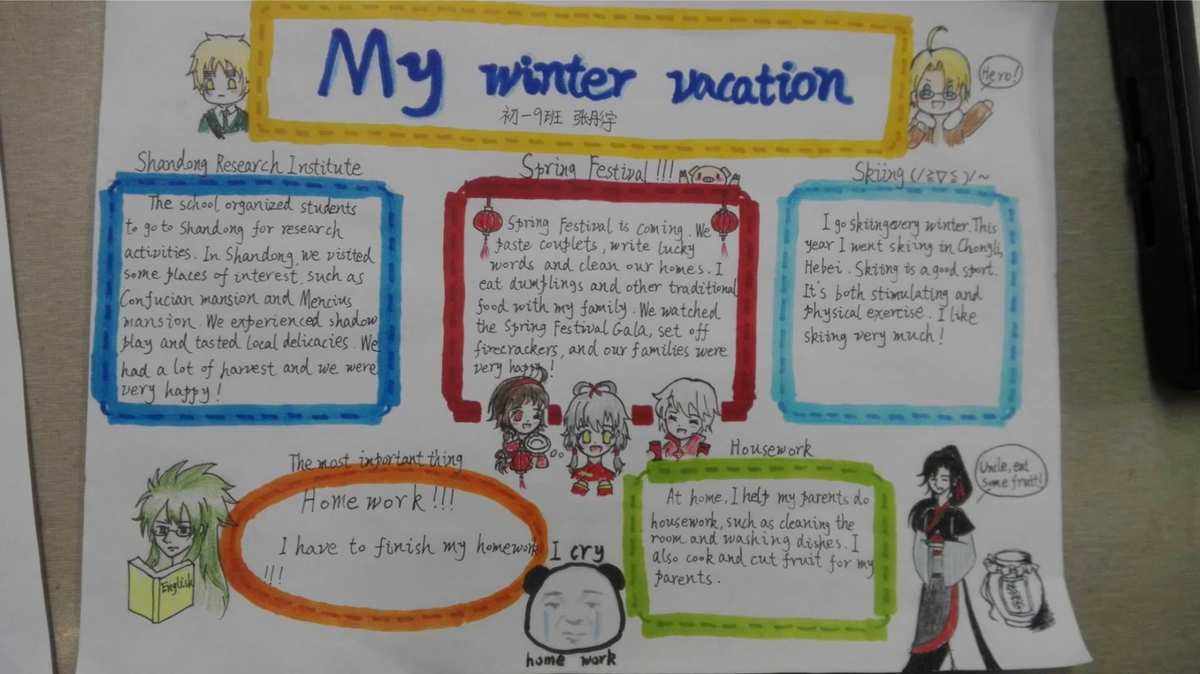 My winter vacation
初一9班 张彤宇
Hero!
Shandong Research Institute
The school organized students
to go to Shandong for research
activities. In Shandong, we visited
some places of interest, such as
Confucian mansion and Mencius
mansion. We experienced shadow
play and tasted local delicacies. We
had a lot of harvest and we were
very happy!
Spring Festival!!!
Spring Festival is coming. We
paste couplets, write lucky
words and clean our homes. I
eat dumplings and other traditional
food with my family. We watched
the Spring Festival Gala, set off
firecrackers, and our families were
very happy!
Skiing (/≧▽≦)/~
I go skiing every winter. This
year I went skiing in Chongli,
Hebei. Skiing is a good sport.
It's both stimulating and
physical exercise. I like
skiing very much!
The most important thing
Home work!!!
I have to finish my homework
!!!
English
I cry
home work
Housework
At home, I help my parents do
housework, such as cleaning the
room and washing dishes. I
also cook and cut fruit for my
parents.
Uncle, eat
some fruit!